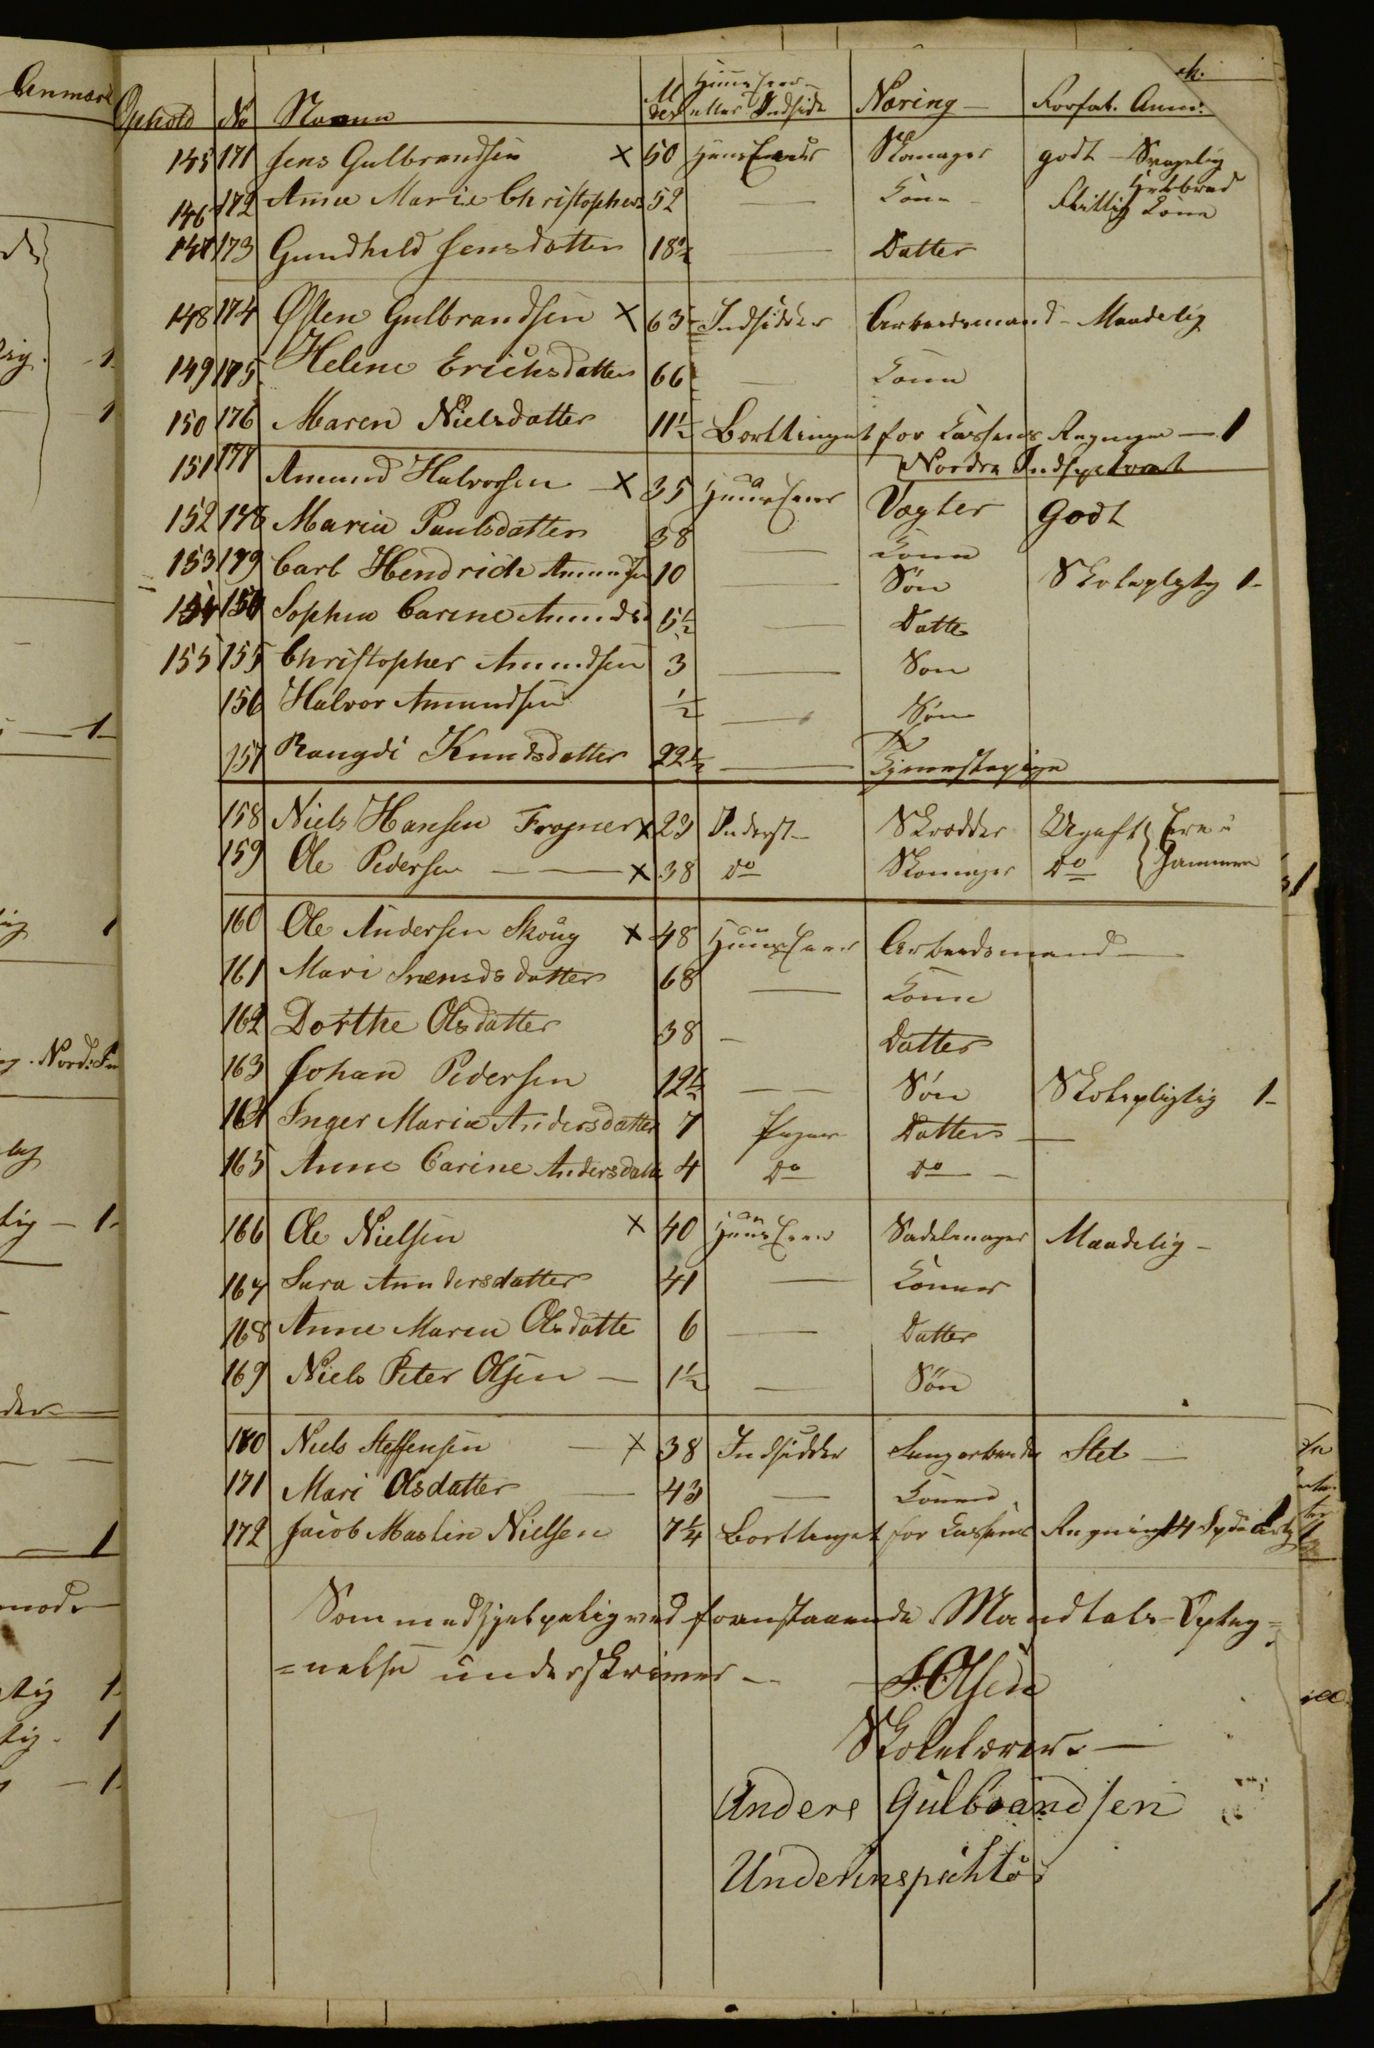 Ophold No Navne Alder Huuseier eller Indsidd Næring Forfat. Anm:
145 171 Jens Gulbrandsen x 50 Huuseier Skomager godt - Svagelig
146 172 Anne Marie Christophers 52 — Kone Flittig Kone
147 173 Gundhild Jensdatter 18½ — Datter
148 174 Østen Gulbrandsen x 65 Indsidder Arbeidsmand - Maadelig
149 175 Helene Erichsdatter 66 — Kone
150 176 Maren Nielsdatter 11½ Borttinget for Kassens Regning — 1
Nordre Indspectorat
151 177 Amund Halvorsen x 35 Huuseier Vægter Godt
152 178 Maria Paulsdatter 38 — Kone
153 179 Carl Hendrich Amunds 10 — Søn Skolepligtig 1-
154 154 Sophia Carine Amundsd 5½ — Datter
155 155 Christopher Amundsen 3 — Søn
156 Halvor Amundsen ½ — Søn
157 Rangdi Knudsdatter 22½ — Tjenestepige
158 Niels Hansen Frogner x 23 Inderst - Skrædder Ugift
159 Ole Pedersen — x 38 Do Skomager Do
160 Ole Andersen Skoug x 48 Huuseier Arbeidsmand —
161 Mari Svensdsdatter 68 — Kone
162 Dorthe Olsdatter 38 - Datter
163 Johan Pedersen 12½ — Søn Skolepligtig 1-
164 Inger Maria Andersdatter 7 Datter —
165 Anne Carine Andersdatter 4 Do Do -
166 Ole Nielsen x 40 Huuseier Sadelmager Maadelig -
167 Sara Anndersdatter 41 — Konen
168 Anne Maren Olsdatte 6 — Datter
169 Niels Peter Olsen — 1½ — Søn
180 Niels Steffensen — x 38 Indsidder Slet —
171 Mari Olsdatter — 43 — Konen
172 Jacob Maslin Nielsen 7¼ Borttinget for Kassens Regning 14
Som medhjelpelig ved foranstaaende Mandtals-Opteg=
=nelse underskriver —
S. Olsen
Skolelærer. —
Anders Gulbrandsen
Underinspehtør